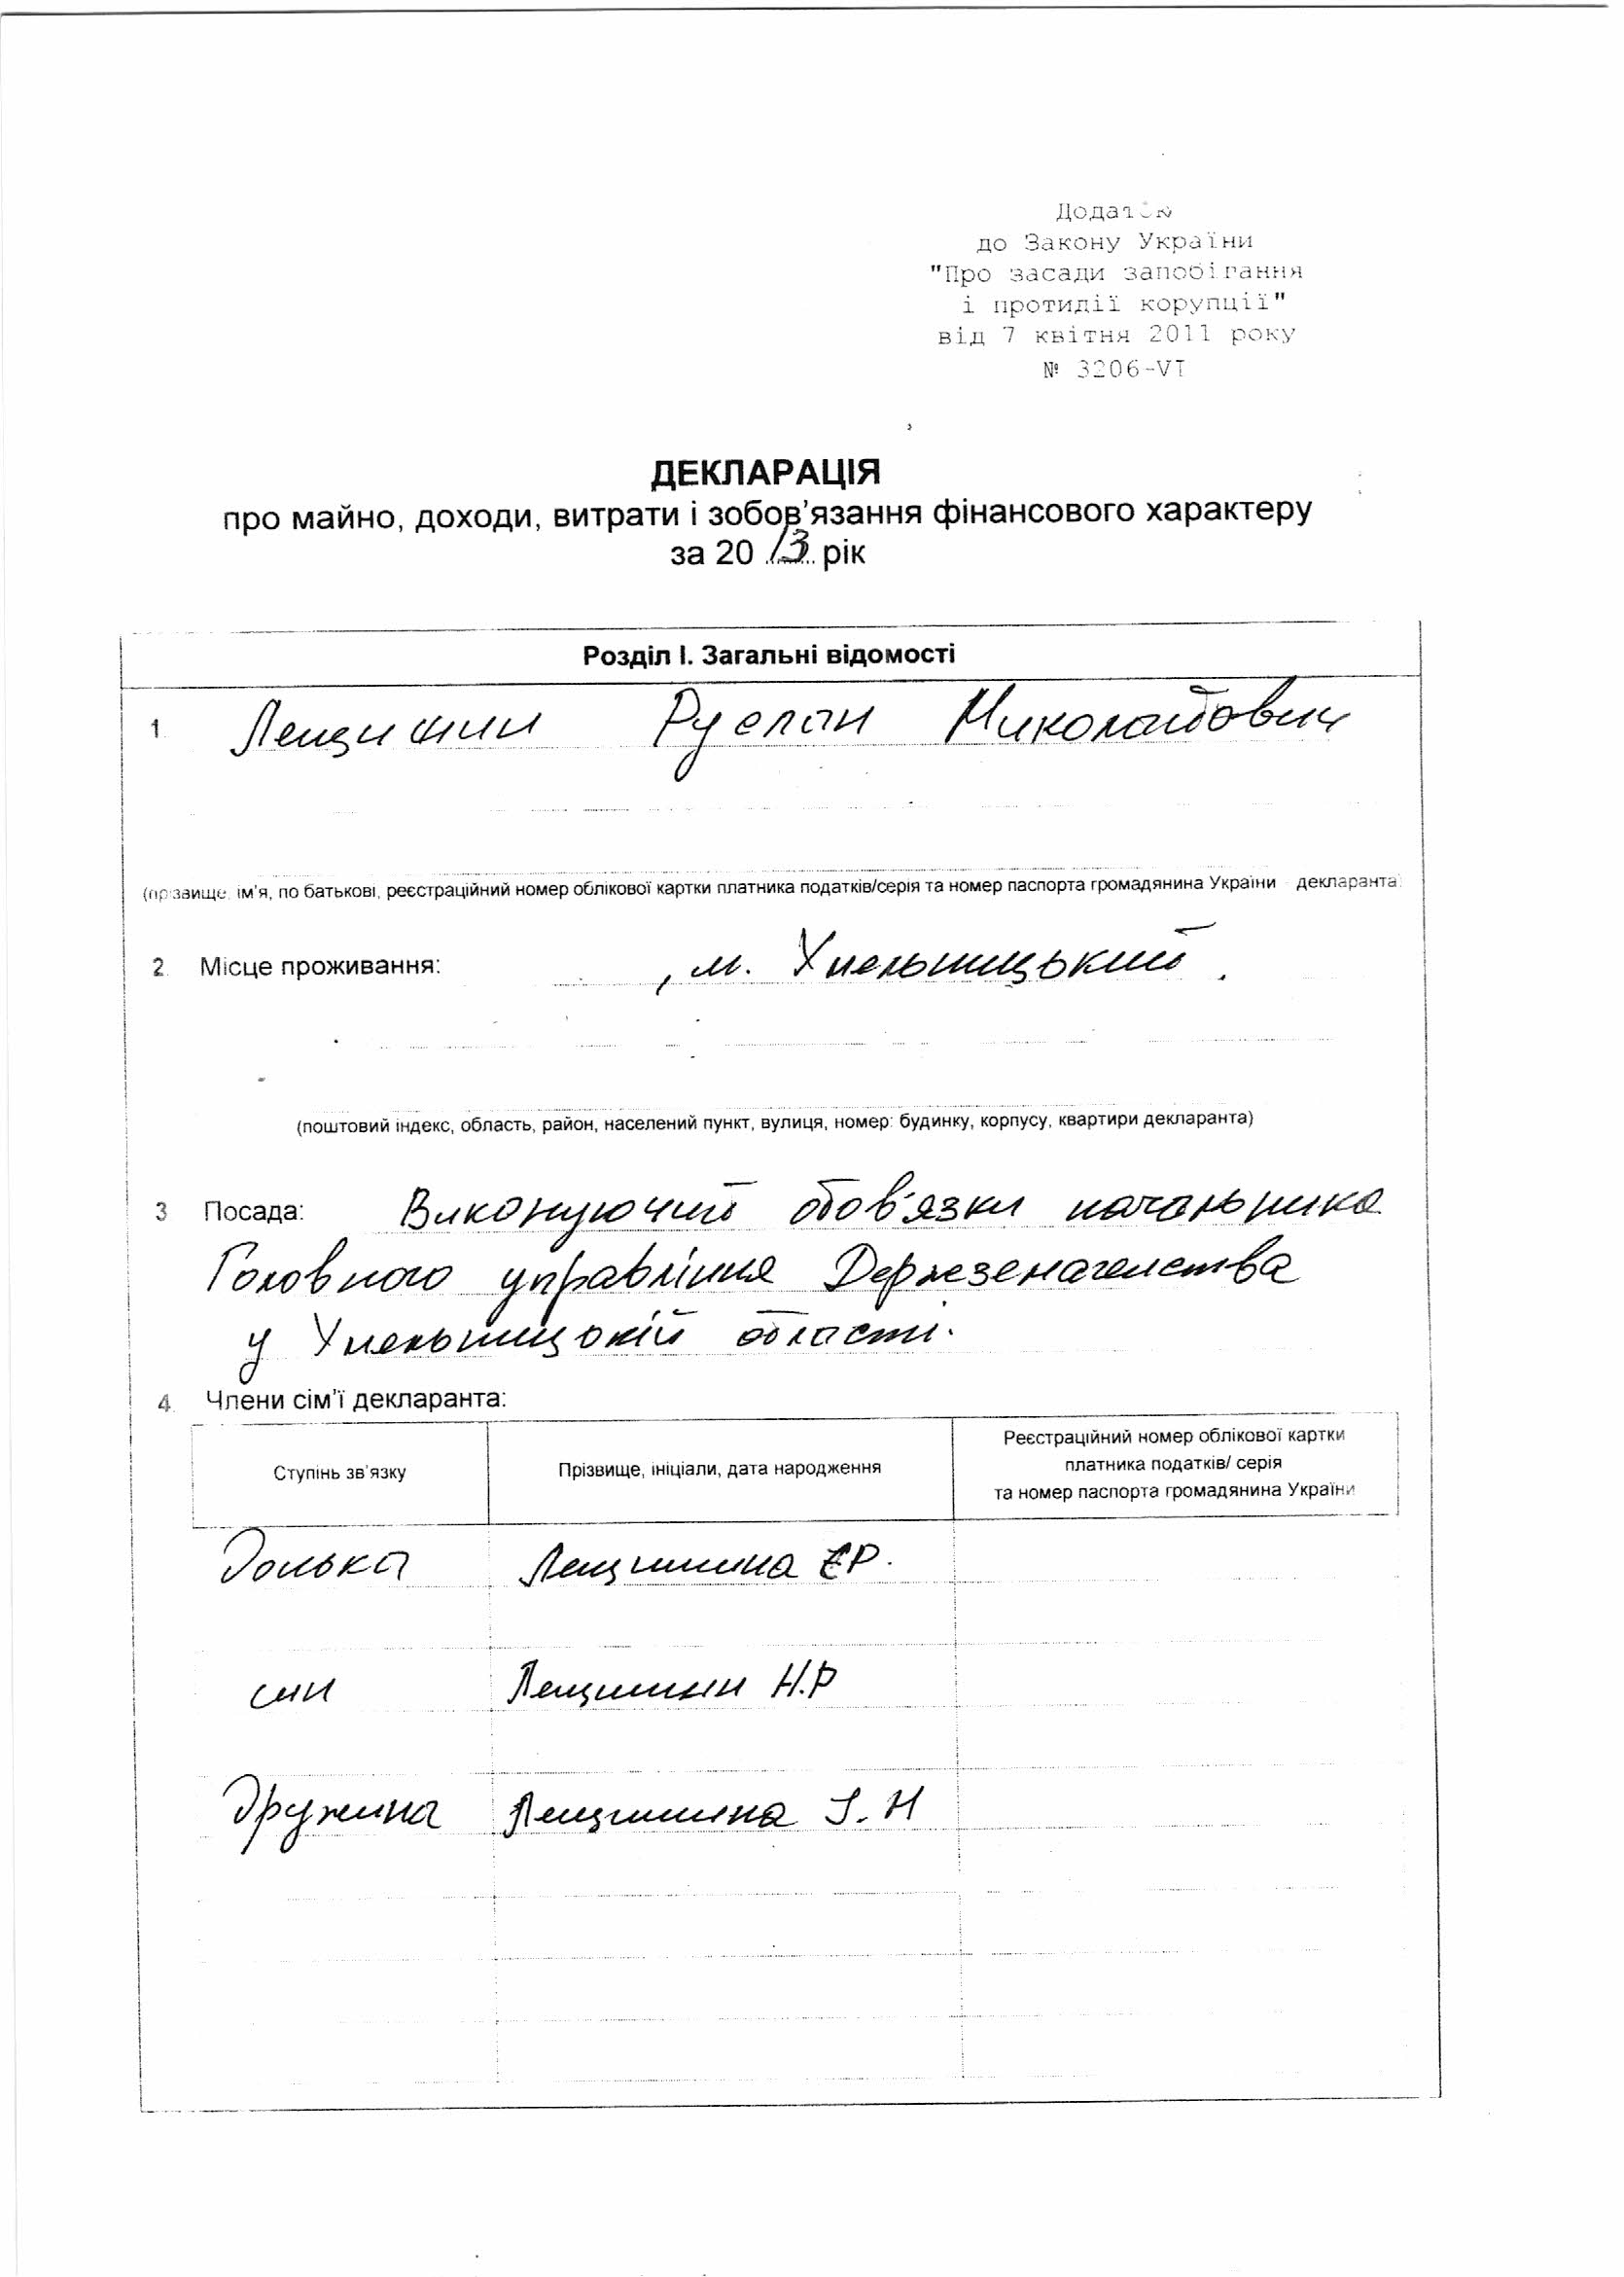 Додаток
до Закону України
"Про засади запобігання
і протидії корупції"
від 7 квітня 2011 року
№ 3206-VI
ДЕКЛАРАЦІЯ
про майно, доходи, витрати і зобов'язання фінансового характеру
за 2013 рік
Розділ І. Загальні відомості
1. Лещишин Руслан Миколайович
(прізвище, ім'я, по батькові, реєстраційний номер облікової картки платника податків/серія та номер паспорта громадянина України - декларанта)
2. Місце проживання: , м. Хмельницький.
(поштовий індекс, область, район, населений пункт, вулиця, номер: будинку, корпусу, квартири декларанта)
3 Посада: Виконуючий обов'язки начальника
Головного управління Держземагенства
у Хмельницькій області.
4. Члени сім'ї декларанта:
Ступінь зв'язку Прізвище, ініціали, дата народження Реєстраційний номер облікової картки платника податків/ серія та номер паспорта громадянина України
Донька Лещишина Є.Р.
син Лещишин Н.Р
Дружина Лещишина І.М